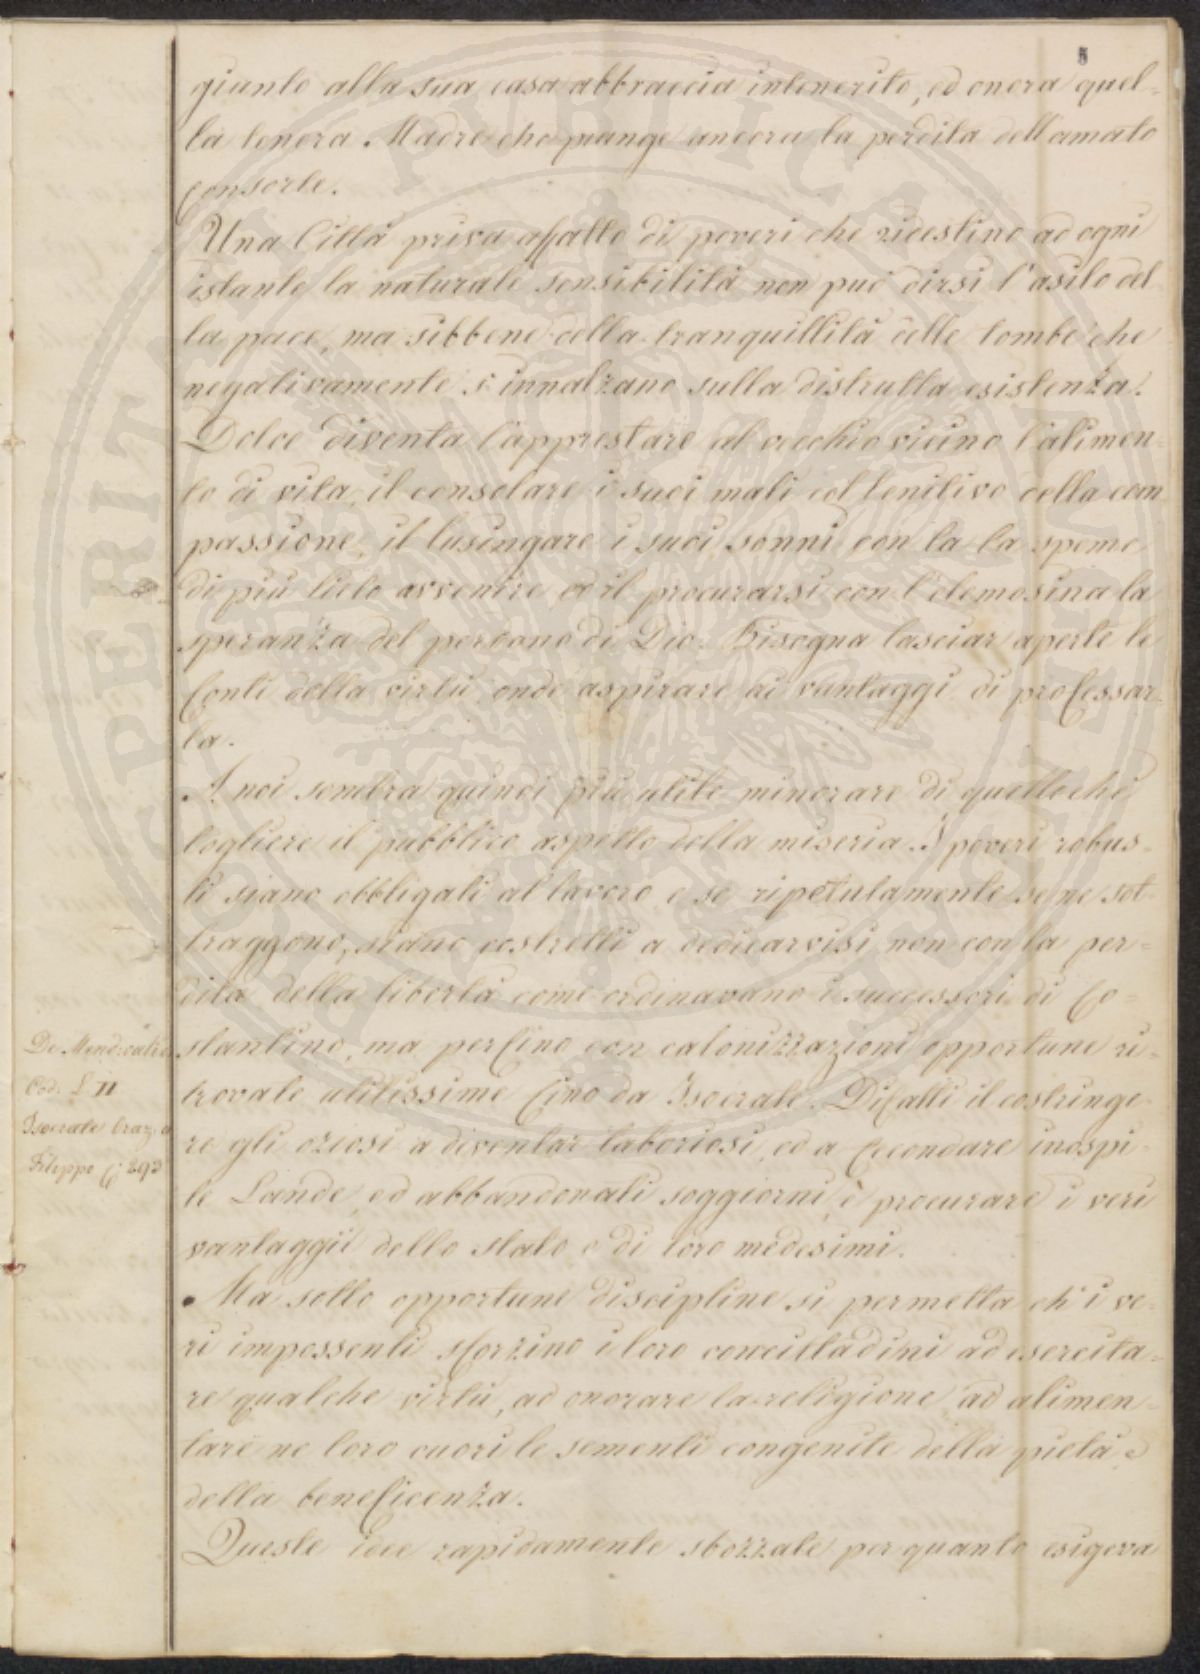 5
giunto alla sua casa abbraccia intenerito, ed onora quel-
la tenera Madre che piange ancora la perdita dell'amato
consorte.
Una Città priva affatto di poveri che ridestino ad ogni
istante la naturale sensibilità non può dirsi l'asilo del-
la pace, ma sibbene della tranquillità delle tombe che
negativamente s'innalzano sulla distrutta esistenza.
Dolce diventa l'apprestare al vecchio vicino l'alimen-
to di vita, il consolare i suoi mali col lenitivo della com
passione, il lusingare i suoi sonni con la la speme
di più lieto avvenire ed il procurarsi con l'elemosina la
speranza del perdono di Dio. Bisogna lasciar aperte le
fonti della virtù, onde aspirare ai vantaggi di professar-
la.
A noi sembra quindi più utile minorare di quello che
togliere il pubblico aspetto della miseria. I poveri robus-
ti siano obbligati al lavoro e se ripetutamente se ne sot-
traggono, siano costretti a dedicarvisi non con la per-
dita della libertà come ordinavano i successori di Co-
stantino, ma perfino con colonizzazioni opportune ri-
trovate utilissime fino da Isocrate. Difatti il costringe-
re gli oziosi a diventar laboriosi, ed a fecondare inospi-
te Lande, ed abbandonati soggiorni, è procurare i veri
vantaggii dello stato e di loro medesimi.
Ma sotto opportune discipline si permetta ch'i ve-
ri impossenti sforzino i loro concittadini ad esercita-
re qualche virtù, ad onorare la religione, ad alimen-
tare ne loro cuori le sementi congenite della pietà, e
della beneficenza.
Queste idee rapidamente sbozzate per quanto esigeva
De Mend. valid.
Cod. L II
Isocrate Oraz. a
Filippo f. 292